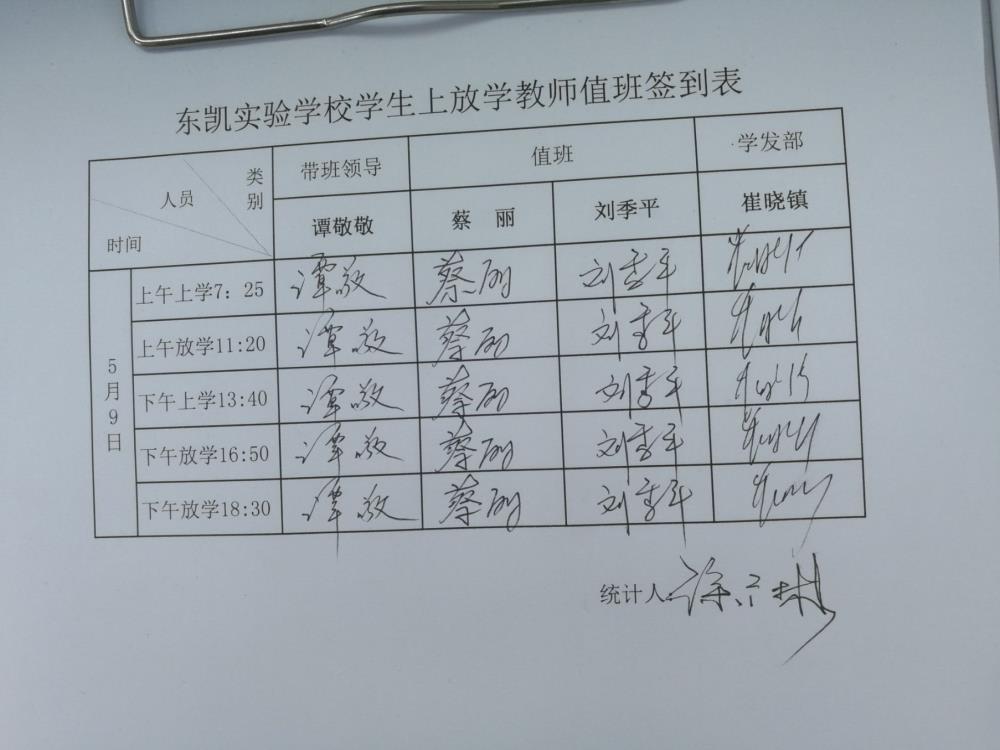 东凯实验学校学生上放学教师值班签到表
类别 人员 时间 带班领导 值班 学发部
谭敬敬 蔡 丽 刘季平 崔晓镇
5月9日
上午上学7：25 谭敬 蔡丽 刘季平
上午放学11:20 谭敬 蔡丽 刘季平
下午上学13:40 谭敬 蔡丽 刘季平
下午放学16:50 谭敬 蔡丽 刘季平
下午放学18:30 谭敬 蔡丽 刘季平
统计人